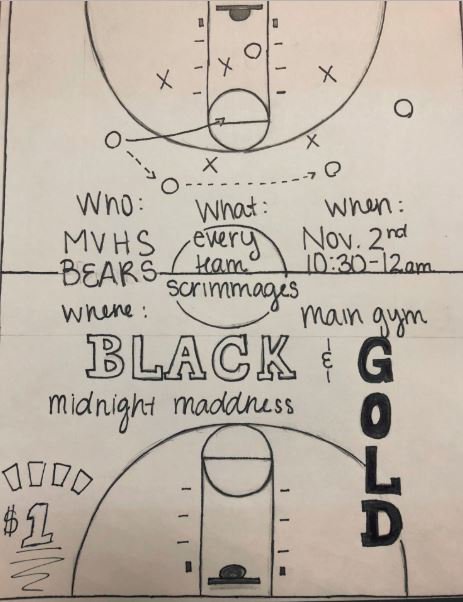 Who: What: When:
MVHS every Nov. 2nd
BEARS team 10:30-12am
scrimmages
where: main gym
BLACK & GOLD
midnight maddness
$1